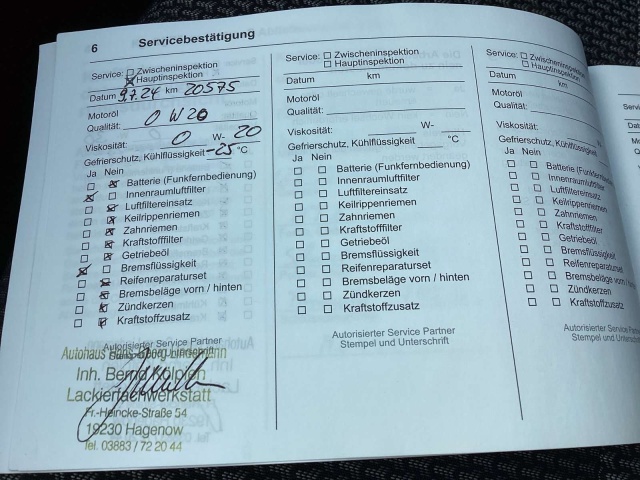 6 Servicebestätigung
Service: Zwischeninspektion
Hauptinspektion
Datum 9.7.24 km 20575
Motoröl
Qualität: 0 W20
Viskosität: 0 W- 20
Gefrierschutz, Kühlflüssigkeit -25 °C
Ja Nein
Batterie (Funkfernbedienung)
Innenraumluftfilter
Luftfiltereinsatz
Keilrippenriemen
Zahnriemen
Kraftstofffilter
Getriebeöl
Bremsflüssigkeit
Reifenreparaturset
Bremsbeläge vorn / hinten
Zündkerzen
Kraftstoffzusatz
Autorisierter Service Partner
Autohaus
Inh. Bernd
Lackierfachwerkstatt
Fr.-Heincke-Straße 54
19230 Hagenow
Tel. 03883 / 72 20 44
Service: Zwischeninspektion
Hauptinspektion
Datum km
Motoröl
Qualität:
Viskosität: W-
Gefrierschutz, Kühlflüssigkeit °C
Ja Nein
Batterie (Funkfernbedienung)
Innenraumluftfilter
Luftfiltereinsatz
Keilrippenriemen
Zahnriemen
Kraftstofffilter
Getriebeöl
Bremsflüssigkeit
Reifenreparaturset
Bremsbeläge vorn / hinten
Zündkerzen
Kraftstoffzusatz
Autorisierter Service Partner
Stempel und Unterschrift
Service: Zwischeninspektion
Hauptinspektion
Datum km
Motoröl
Qualität:
Viskosität:
Gefrierschutz, Kühlflüssigkeit
Ja Nein
Batterie (Funkfernbedienung)
Innenraumluftfilter
Luftfiltereinsatz
Keilrippenriemen
Zahnriemen
Kraftstofffilter
Getriebeöl
Bremsflüssigkeit
Reifenreparaturset
Bremsbeläge vorn /
Zündkerzen
Kraftstoffzusatz
Autorisierter Service
Stempel und Unterschrift
Service